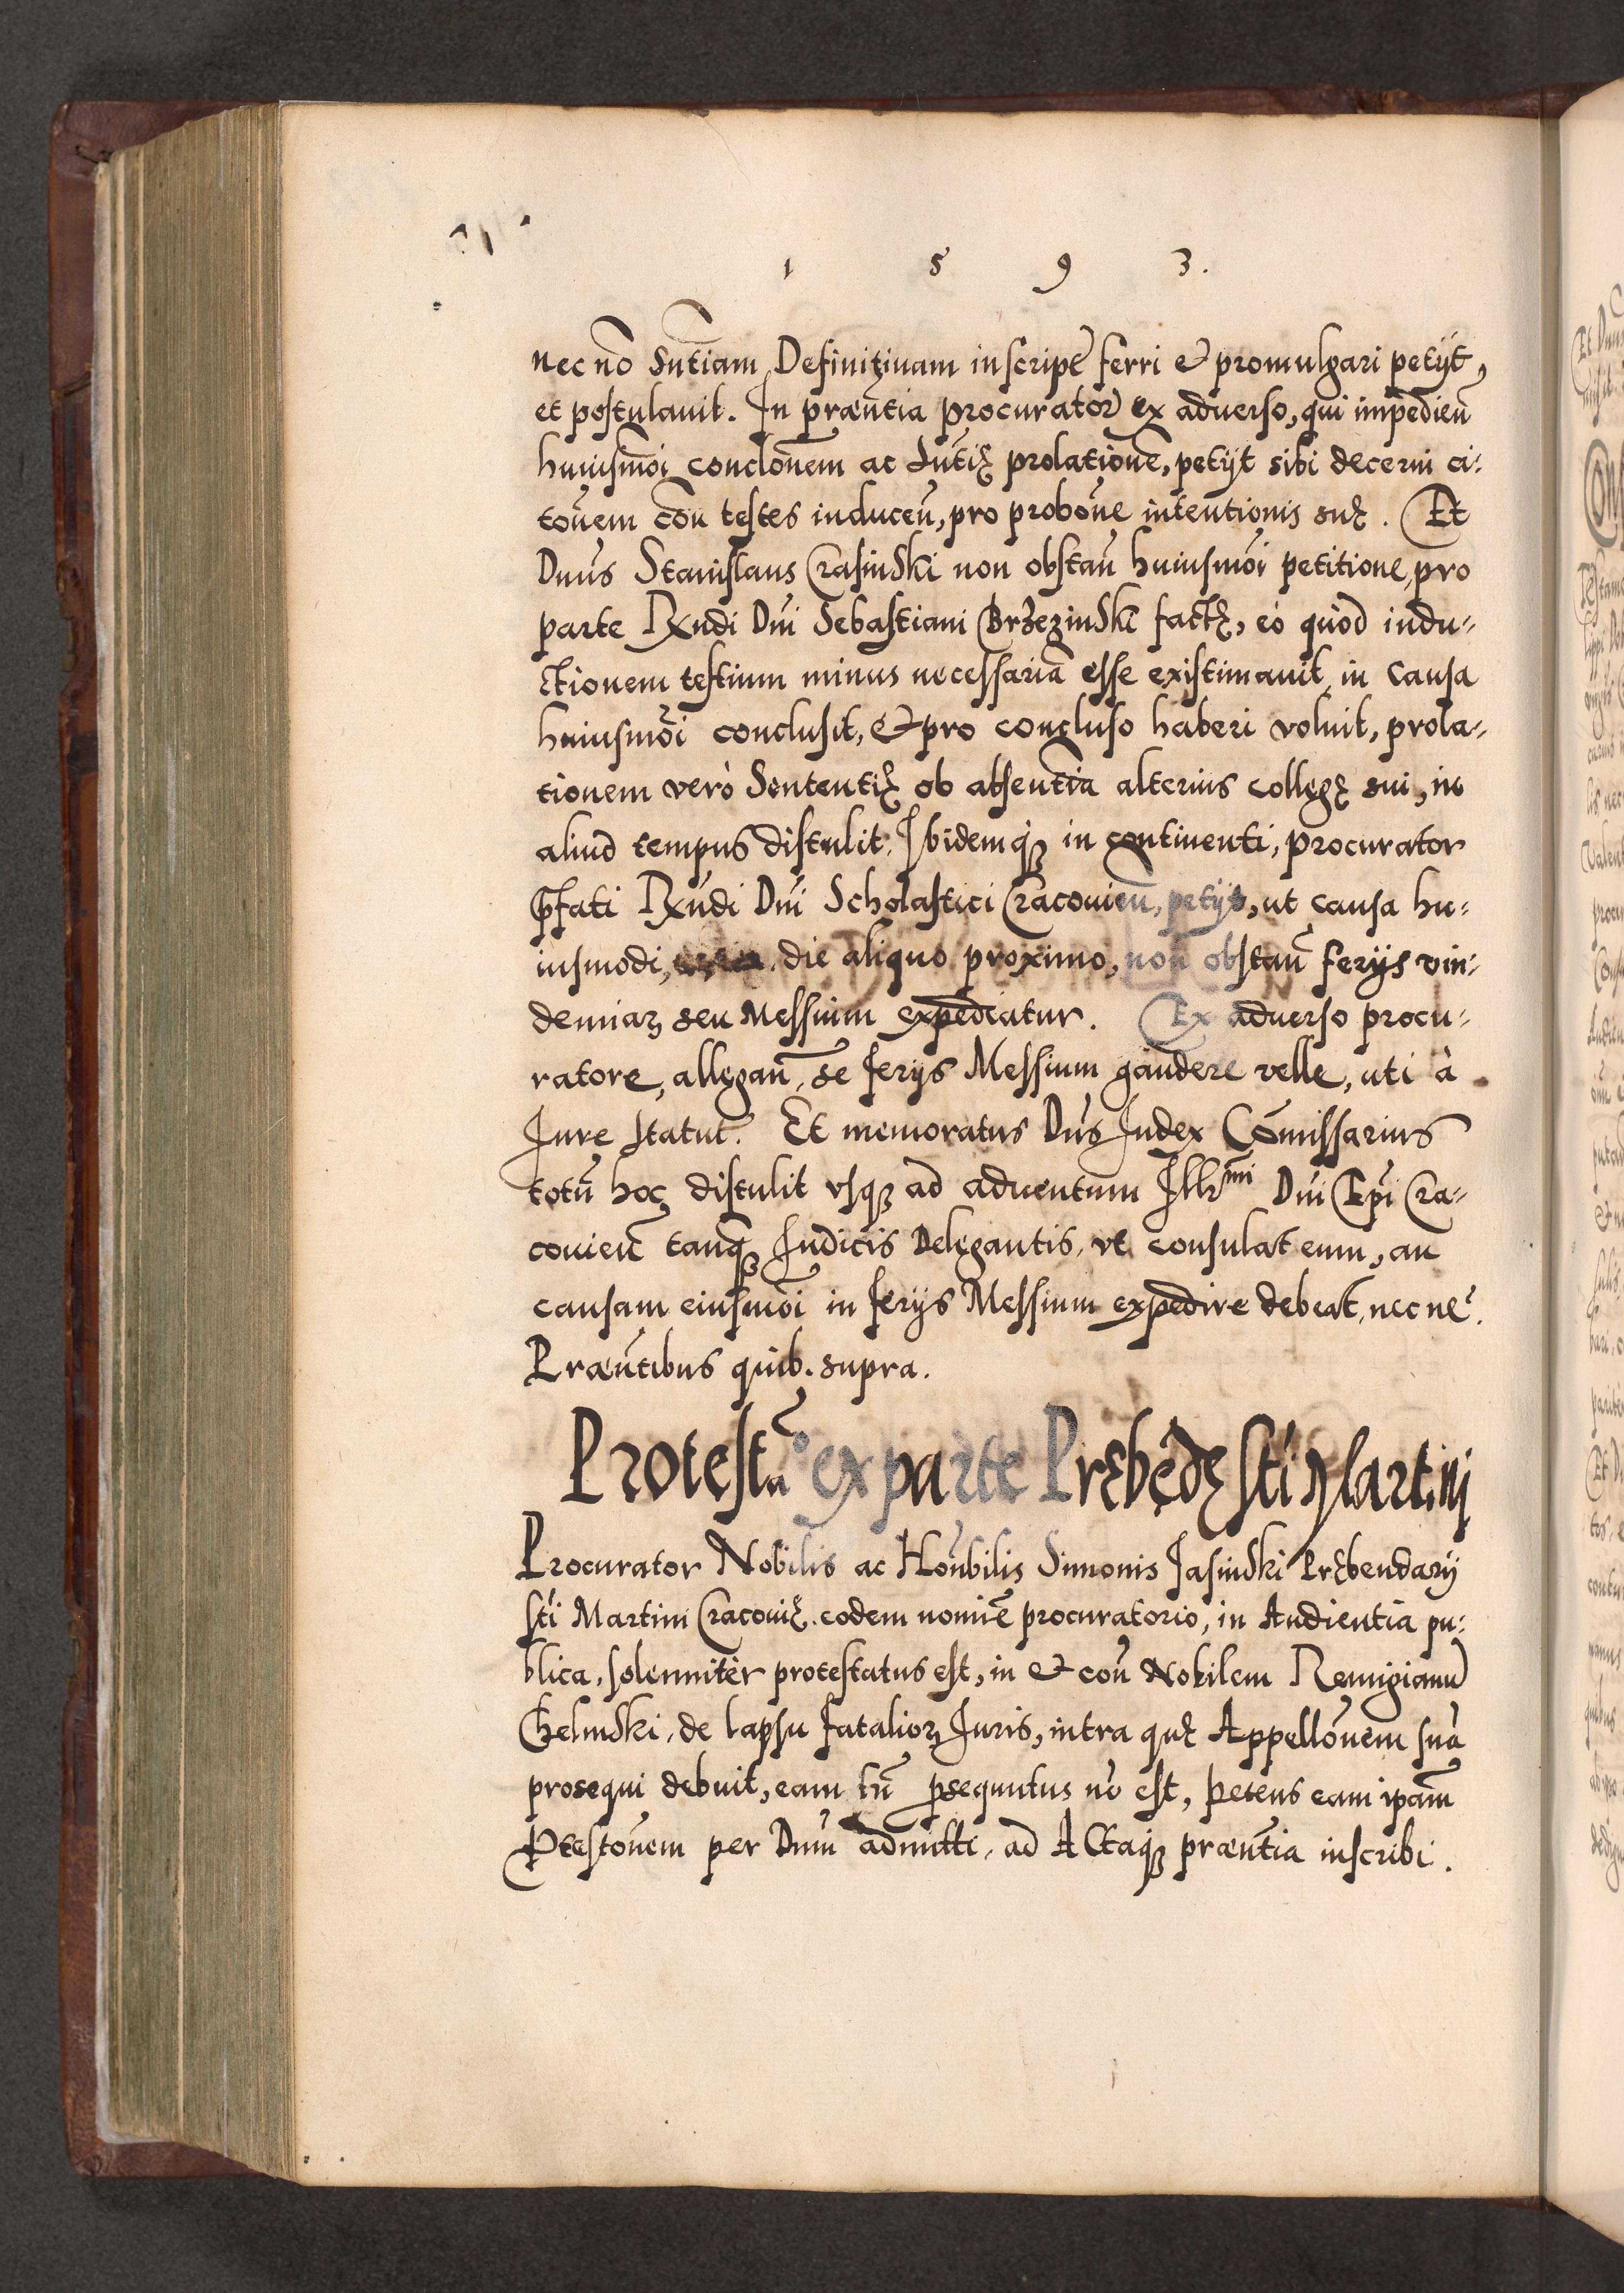 1 5 9 3.
nec nō Sntīam Definitiuam in script̃ ferri et promulgari petÿt,
et postulauit. In præntia procurator̃ ex aduerso, qui impedien̄
huiusmōi conclōnem ac sn̄tię prolationē, petÿt sibi decerni ci:
tōuem con̄ testes inducen̄, pro probōne intentionis suę. Et
Dnūs Stanislaus Crasinski non obstan̄ huiusmōi petitione, pro
parte Rx̄ndi Dn̄i Sebastiani Brzezinski factę, eò quòd indu„
ctionem testium minus necessariā esse existimauit, in causa
huiusmōi conclusit, et pro concluso haberi voluit, prola„
tionem verò Sententię ob absentia alterius collegę sui, in
aliud tempus distulit. Ibidemq́ꝫ in continenti, procurator
p̄fati Rx̄ndi Dn̄i Scholastici Cracouien̄, petÿt, ut causa hu:
iusmodi, die aliquo proximo, non obstan̄ ferÿs vin:
demiaꝝ seu Messium expediatur. Ex aduerso procu„
ratore, allegan̄, se ferÿs Messium gaudere velle, uti à
Iure statut̃. Et memoratus Dn̄s Iudex Com̄issarius
totū hoc distulit vsqꝫ ad aduentum Illr̄mi Dn̄i Ep̄i Cra„
couien̄ tanqꝫ Iudicis Delegantis, vt consulat eum, an
causam eiusmōi in ferÿs Messium expedire debeat, nec ne?.
Præn̄tibus quib. supra.
Protestaō ex parte Pręb̨ēdę sti Martinj
Procurator Nobilis ac Hon̄bilis Simonis Jasinski Pręb̨endarÿ
Sti Martini Cracouię. eodem nomīe procuratorio, in Audientia pu:
blica, solenniter protestatus est, in et con̄ Nobilem Remigianū
Chelmski, de lapsu fatalioꝝ Iuris, intra quę Appellōnem suā
prosequi debuit, eam tn̄ ꝓsequutus nō est, petens eam ipām
Ꝓtestōnem per Dn̄m admitti, ad Actaqꝫ præn̄tia inscribi.